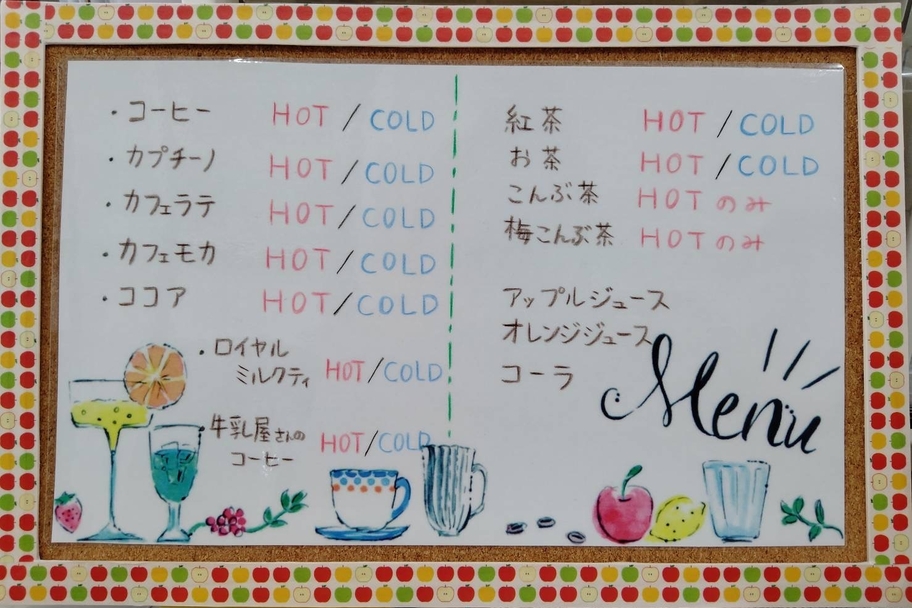 ・コーヒー HOT / COLD
・カプチーノ HOT / COLD
・カフェラテ HOT / COLD
・カフェモカ HOT / COLD
・ココア HOT / COLD
・ロイヤル
ミルクティ HOT / COLD
・牛乳屋さんの
コーヒー HOT / COLD
紅茶 HOT / COLD
お茶 HOT / COLD
こんぶ茶 HOTのみ
梅こんぶ茶 HOTのみ
アップルジュース
オレンジジュース
コーラ
Menu